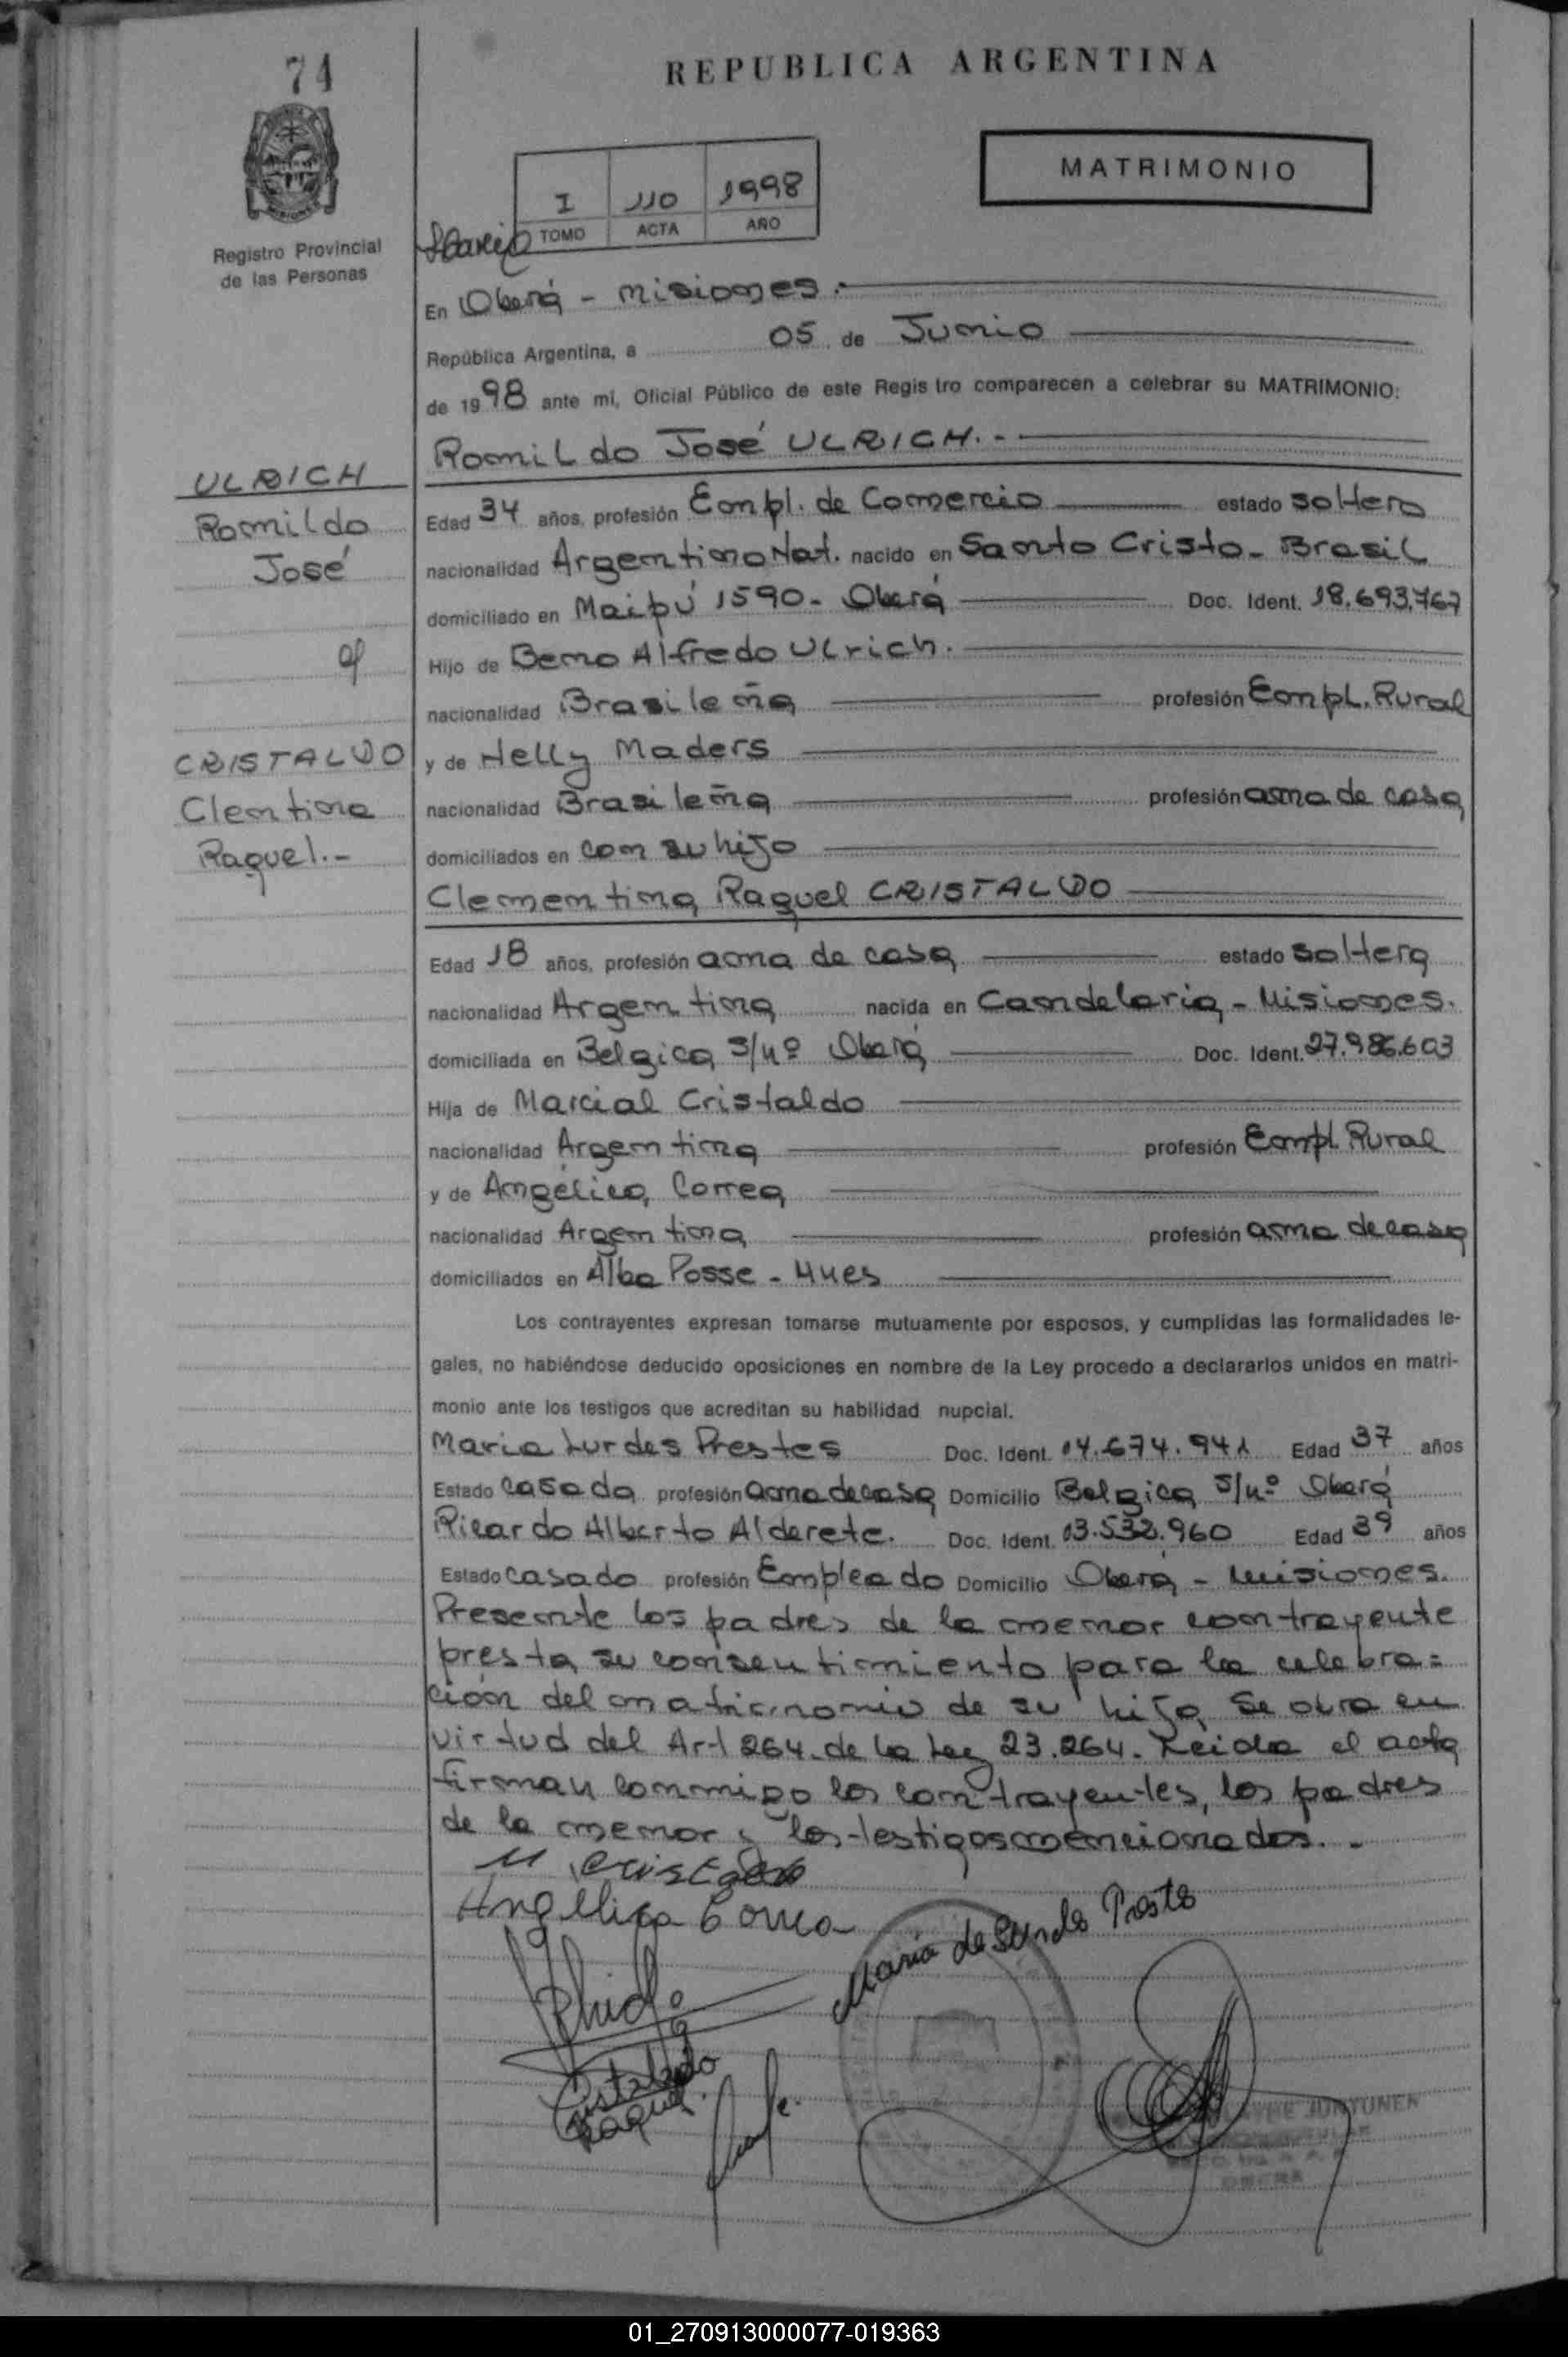 74
REPUBLICA ARGENTINA
MATRIMONIO
I 110 1998
TOMO ACTA AÑO
Registro Provincial
de las Personas
En Oberá - Misiones.-
República Argentina, a 05 de Junio
de 1998 ante mi, Oficial Público de este Registro comparecen a celebrar su MATRIMONIO:
Romildo José ULRICH.-
ULRICH
Romildo
José
Edad 34 años, profesión Empl. de Comercio estado soltero
nacionalidad Argentino Nat. nacido en Santo Cristo - Brasil
domiciliado en Maipú 1590 - Oberá Doc. Ident. 18.693.767
Hijo de Beno Alfredo Ulrich.
nacionalidad Brasileña profesión Empl. Rural
y de Nelly Maders
CRISTALDO
Clentina
Raquel.-
nacionalidad Brasileña profesión ama de casa
domiciliados en con su hijo
Clementina Raquel CRISTALDO
Edad 18 años, profesión ama de casa estado soltera
nacionalidad Argentina nacida en Candelaria - Misiones.
domiciliada en Belgica S/Nº Oberá Doc. Ident. 27.986.603
Hija de Marcial Cristaldo
nacionalidad Argentina profesión Empl. Rural
y de Angélica Correa
nacionalidad Argentina profesión ama de casa
domiciliados en Alba Posse - Mnes
Los contrayentes expresan tomarse mutuamente por esposos, y cumplidas las formalidades le-
gales, no habiéndose deducido oposiciones en nombre de la Ley procedo a declararlos unidos en matri-
monio ante los testigos que acreditan su habilidad nupcial.
Maria Lurdes Prestes Doc. Ident. 14.674.941 Edad 37 años
Estado casada profesión ama de casa Domicilio Belgica S/Nº Oberá
Ricardo Alberto Alderete. Doc. Ident. 13.532.960 Edad 39 años
Estado casado profesión Empleado Domicilio Oberá - Misiones.
Presente los padres de la menor contrayente
presta su consentimiento para la celebra=
ción del matrimonio de su hija Se obra en
virtud del Art 264 de la Ley 23.264. Leida el acta
firman conmigo los contrayentes, los padres
de la menor y los testigos mencionados.-
M Cristaldo
Angellica Correa
Maria de Lurdes Prestes
Cristaldo
Raquel.
JUNTUNEN
OBERA
01_270913000077-019363